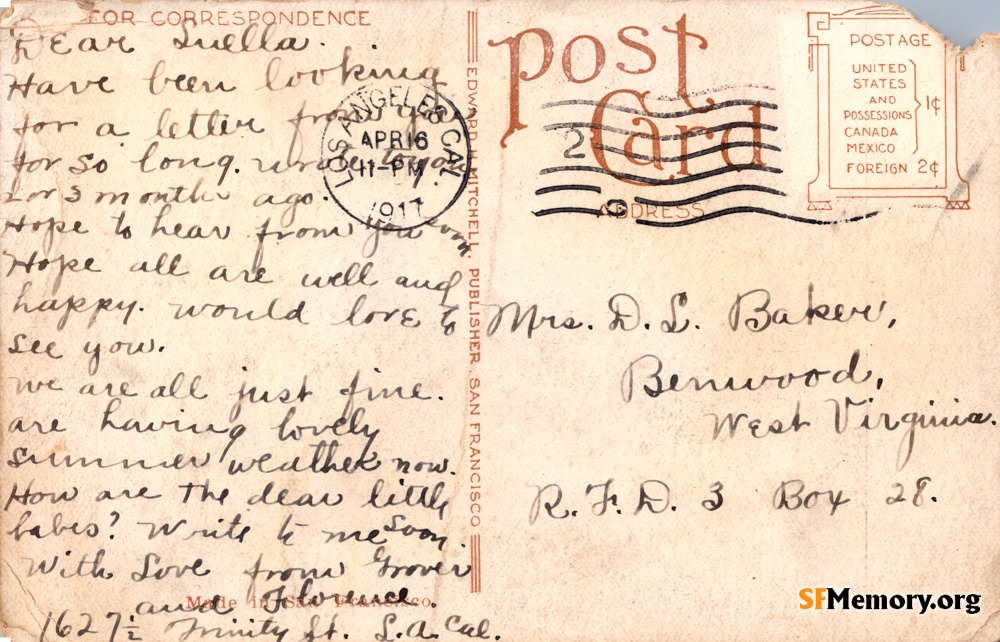 FOR CORRESPONDENCE
Dear Luella.
Have been looking
for a letter from you
for so long. wrote to you
2 or 3 months ago.
Hope to hear from you soon
Hope all are well and
happy. would love to
see you.
We are all just fine.
are having lovely
summer weather now.
How are the dear little
babes? Write to me soon.
With Love from Grover
and Florence.
1627½ Trinity St. L.A. Cal.
Made in San Francisco.
LOS ANGELES, CAL
APR 16
11-PM
1917
EDWARD H. MITCHELL, PUBLISHER, SAN FRANCISCO
post
Card
2
ADDRESS
POSTAGE
UNITED
STATES
AND
POSSESSIONS 1¢
CANADA
MEXICO
FOREIGN 2¢
Mrs. D. L. Baker,
Benwood,
West Virginia.
R.F.D. 3 Box 28.
SFMemory.org